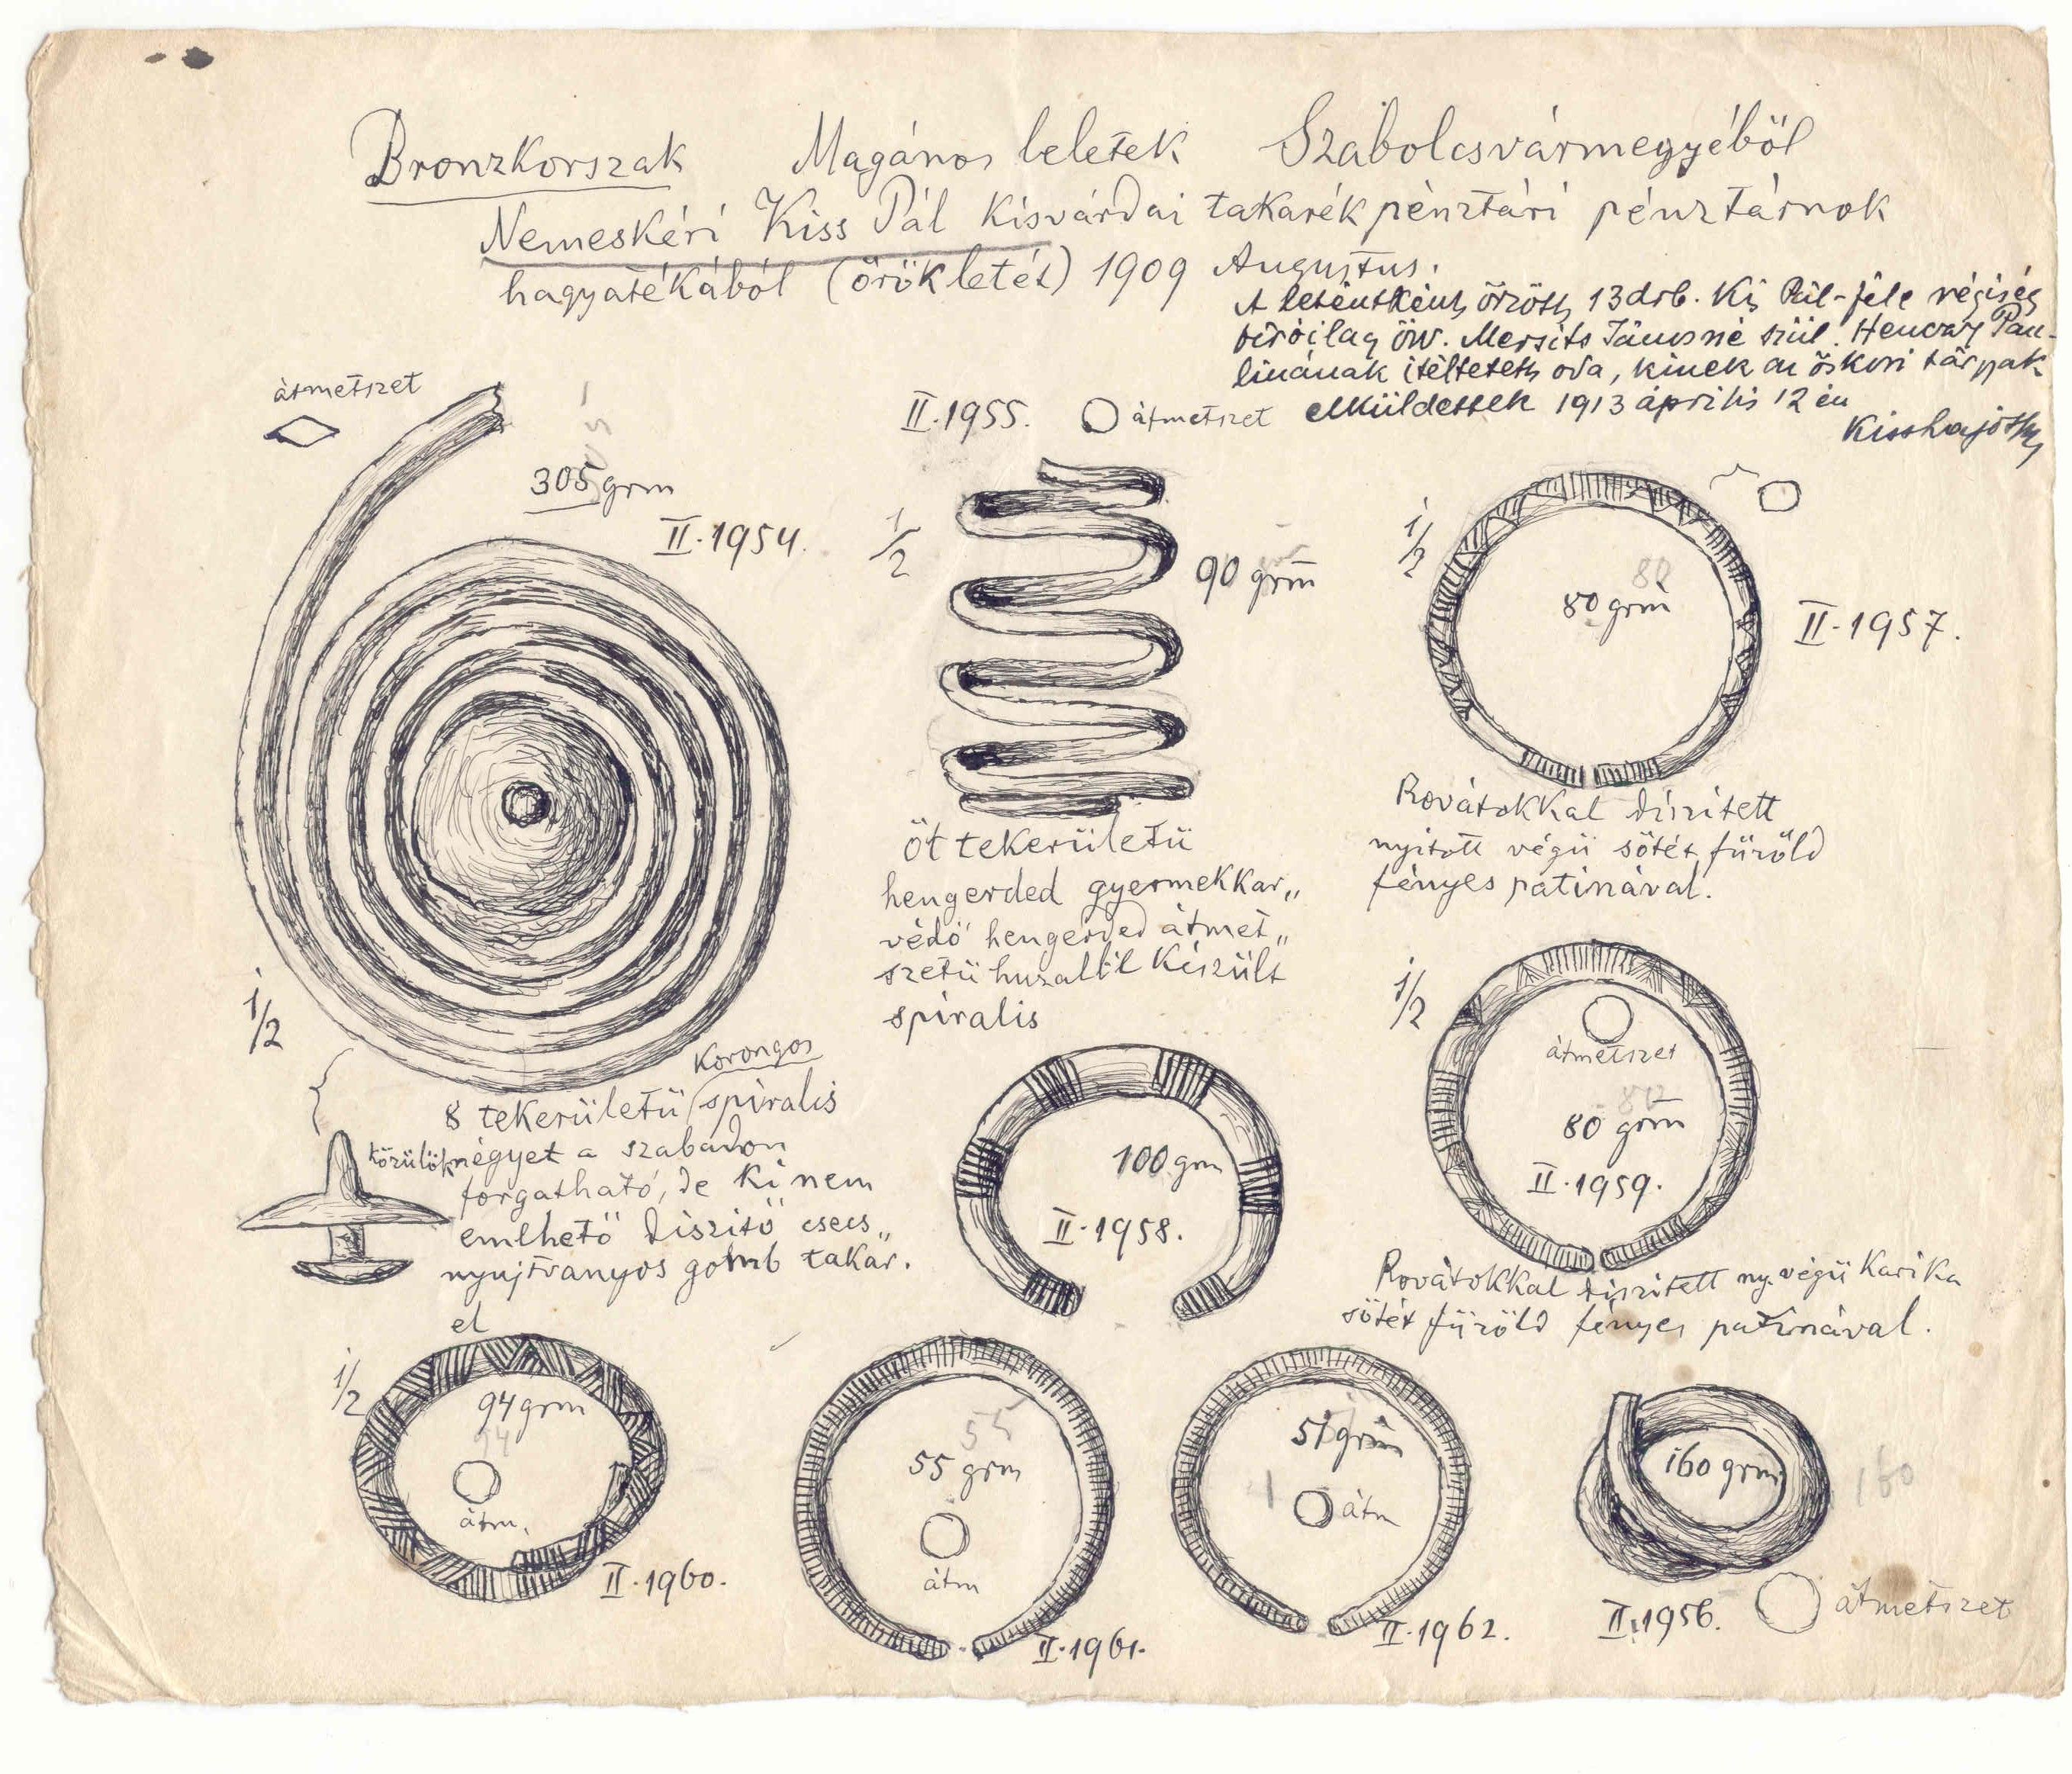 Bronzkorszak Magános leletek Szabolcsvármegyéből
Nemeskéri Kiss Pál kisvárdai takarékpénztári pénztárnok
hagyatékából (örökletét) 1909 Augustus.
A leténtként őrzött 13 drb. Kis Pál-féle régiség
biróilag özv. Mersits Jánosné szül. Henvay Pau-
linának itéltetett oda, kinek az őskori tárgyak
elküldettek 1913 április 12 én
Kisshajóthy
átmetszet
305 grm
II. 1954.
1/2
Korongos
8 tekerületü spirális
közülök négyet a szabadon
forgatható, de ki nem
emlhető diszitő csecs„
nyujtványos gomb takar.
el
II. 1955.
átmetszet
1/2
90 grm
öt tekerületü
hengerded gyermekkar„
védő hengerded átmet„
szetü huzalból készült
spirális
1/2
80
80 grm
II. 1957.
Rovátokkal diszitett
nyitott végü sötét füzöld
fényes patinával.
100 grm
II. 1958.
1/2
átmetszet
80
80 grm
II. 1959.
Rovátokkal diszitett ny. végü karika
sötét füzöld fényes patinával.
1/2
94 grm
94
átm.
II. 1960.
55
55 grm
átm
II. 1961.
51 grm
átm
II. 1962.
160 grm
160
II. 1956.
átmetszet